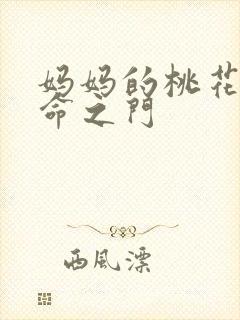 妈妈的桃花
命之门
西风漂